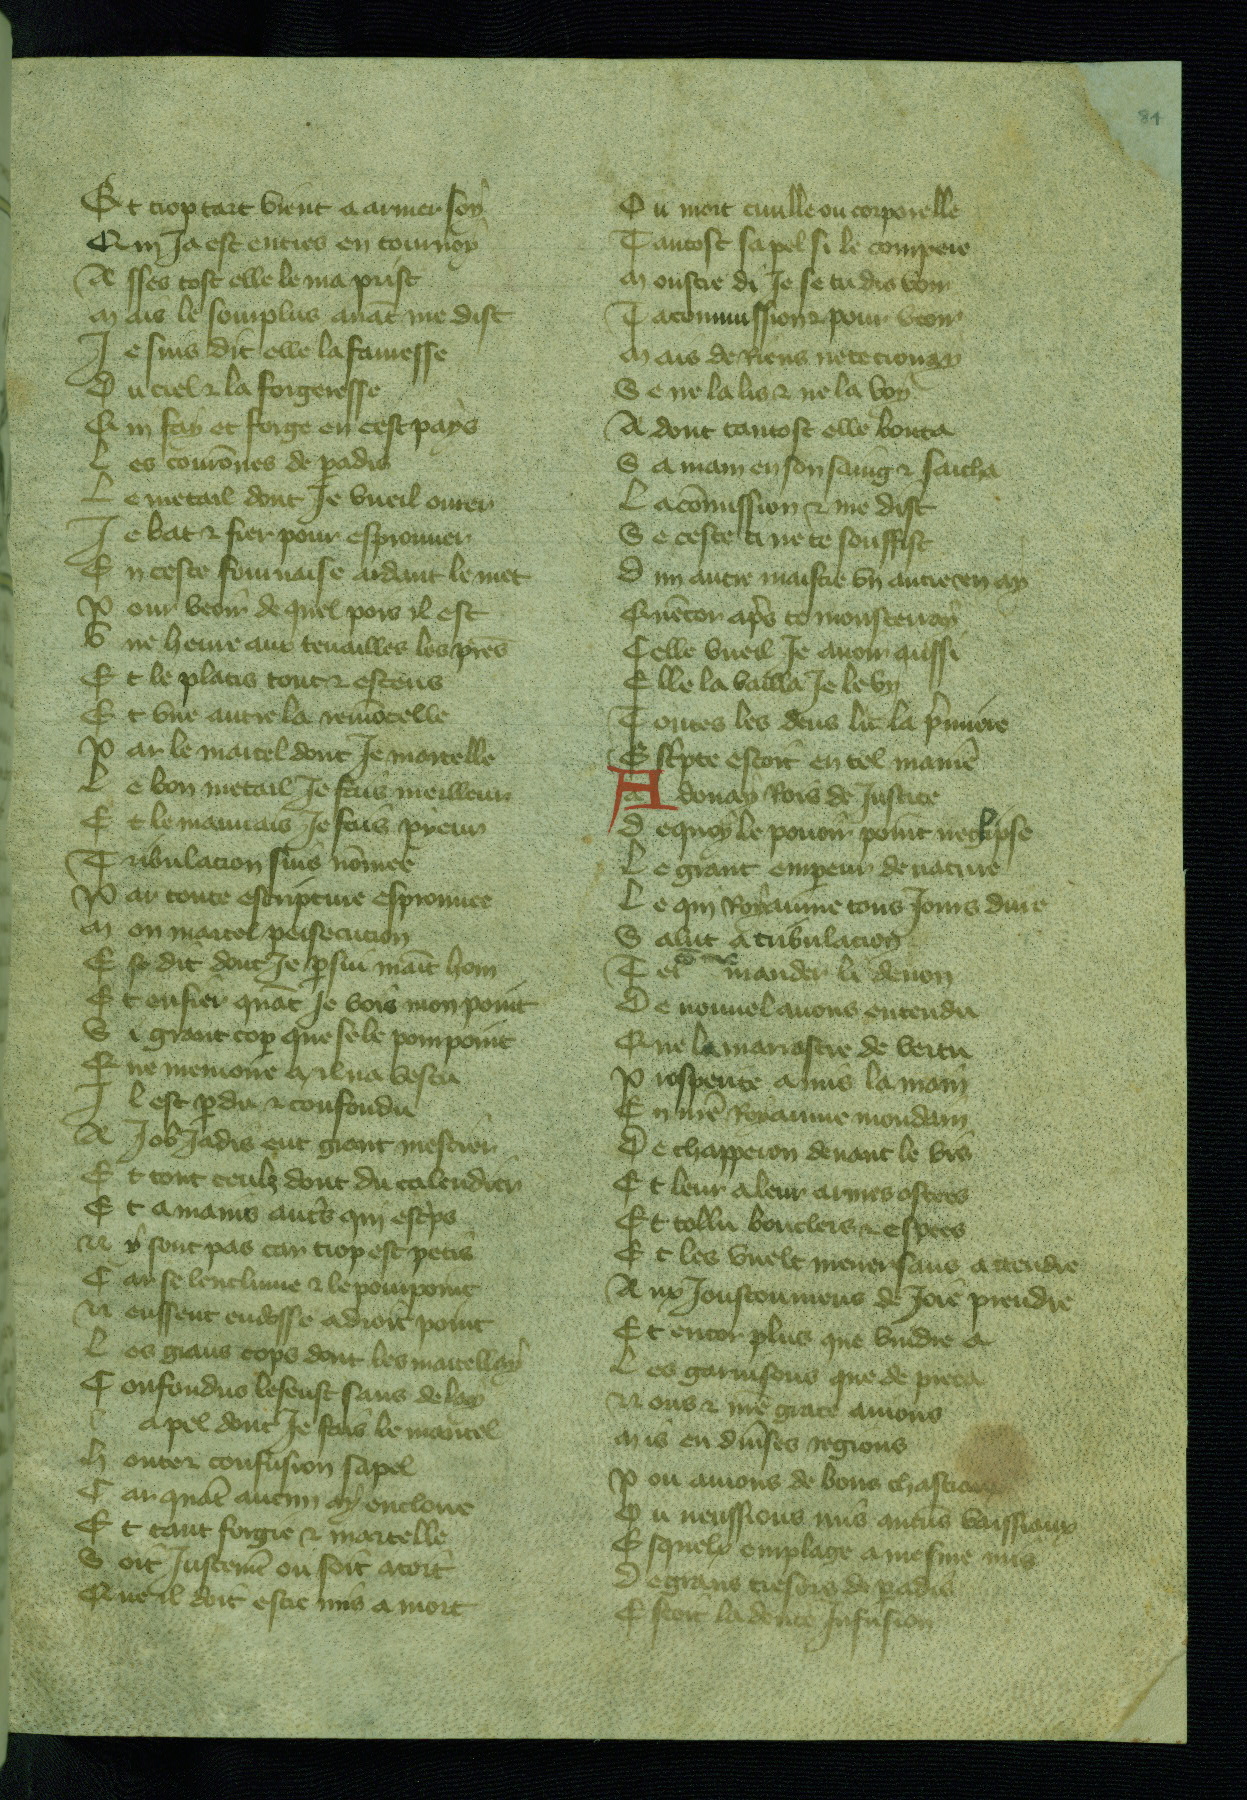 84
Et trop tart vient a armer soy
Qui Ja est entres en tournoy
Asses tost elle le ma prist
Mais le somplus auāt me dist
Je suis dit elle la fauresse
Du ciel ⁊ la forgeresse
Qui fay et forge en cest pays
Les courōnes de padis
Le metail dont Je vueil ouurer
Je bat ⁊ fier pour esprouuer
En ceste fournaise ardant le met
Pour veoir de quel pois il est
Vne heure aux tenailles les prēs
Et le platis tout ⁊ estens
Et vne autre la remōcelle
Par le martel dont Je martelle
Le bon metail Je fais meilleur
Et le mauuais Je fais pyeur
Tribulacion suis nōmee
Par toute escripture esprouuee
Mon martel persecucion
Se dit dont Je psui maīt hom
Et en fier quāt Je vois mon point
Si grant cop que se le pourpoint
Il est pdu ⁊ confondu
A Job Jadis eut grant mestier
Et tout ceulz dont du calendrier
Et a mains autrs qui escrps
Ny sont pas car trop est petis
Car se lenclume ⁊ le pourpoint
Neussent endosse a droit point
Les grans cops dont les martellay
Confondus les eust sans delay
apel dont Je fais le martel
Honte ⁊ confusion sapel
Car quāt aucun ay encloue
Et tant forgie ⁊ martelle
Soit Justemēt ou soit a tort
Que il doit estre mis a mort
Ou mort ciuille ou corporelle
Tantost sapel si le compere
Monstre di Je se tu dis voir
Ta commission pour veoir
Mais de Riens ne te croiray
Se ne la lis ⁊ ne la voy
Adont tantost elle bouta
Sa main en son saing ⁊ saicha
La cōmission ⁊ me dist
Se ceste ci ne te souffist
Dun autre maistre vn autre en ay
Quēcor aprs te monsterray
Celle vueil Je auoir aussi
Elle la bailla Je le vy
Toutes les deus lit la pmiere
Escrpte estoit en tel maniē
Adonay Rois de Justice
De quoy le pouoir point neclipse
Le grant empeur de nature
Le qui Royaume tous Jours dure
Salut a tribulacion
Tel mander li deuon
De nouuel auons entendu
Que la marrastre de vertu
Prosperite a mis la main
En nrē Royaume mondain
De chapperon deuant le vis
Et leur a leur armes ostees
Et tollu bouclers ⁊ espees
Et les vuelt mener sans attendre
Aux Joustournens de Joie prendre
Et encor plus que vuidie a
Les garnisons que de pieca
Nous ⁊ nrē grace auions
Mis en diuses regions
Pou auions de bons chasteaux
Ou neussions mis aucūs vaissiaux
Esquelx emplage a mesme mis
De grans tresors de padis
Estoit la doulce Infusion